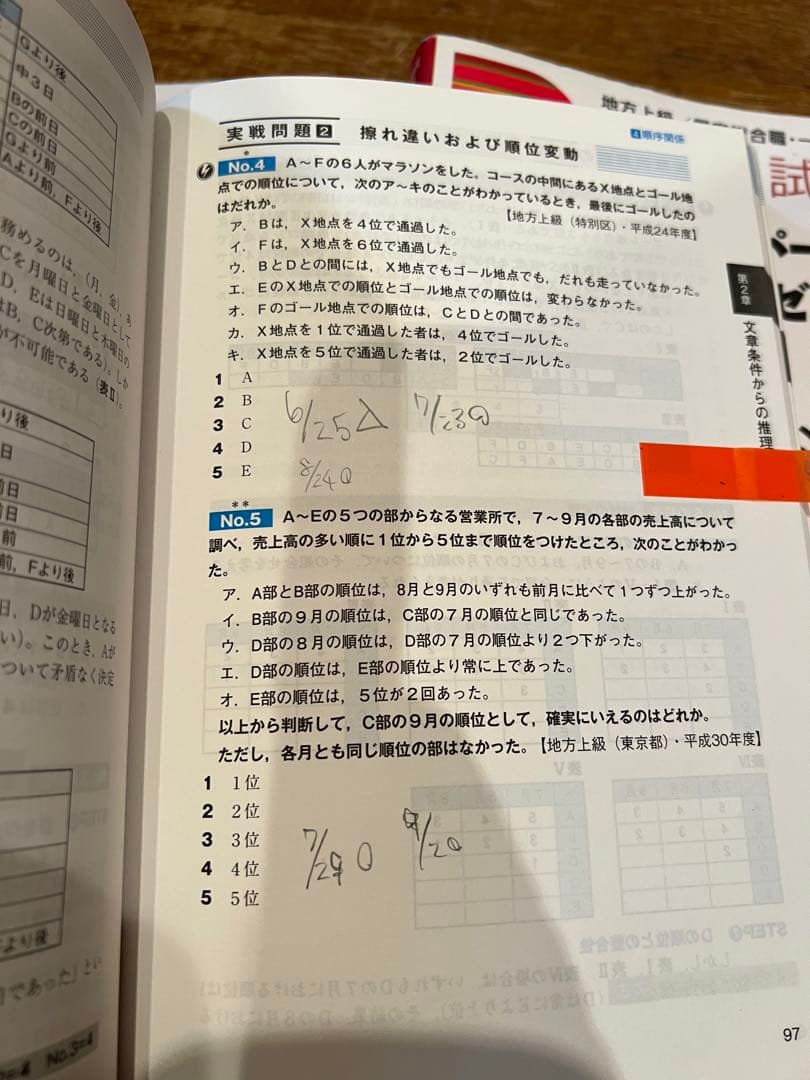 Gより後
中3日
Bの前日
Cの前日
Gより前
Aより前，Fより後
務めるのは，(月，金)，あ
Cを月曜日と金曜日として
D，Eは日曜日と木曜日の
はB，C次第である)。しか
が不可能である(表Ⅱ)。
より後
前日
前日
前日
前
前，Fより後
日，Dが金曜日となる
い)。このとき，Aが
ついて矛盾なく決定
より後
であった」とい
No.3=4
地方上級
試
実戦問題2 擦れ違いおよび順位変動
4順序関係
*
No.4 A～Fの6人がマラソンをした。コースの中間にあるX地点とゴール地
点での順位について，次のア～キのことがわかっているとき，最後にゴールしたの
はだれか。
【地方上級（特別区）・平成24年度】
ア．Bは，X地点を4位で通過した。
イ．Fは，X地点を6位で通過した。
ウ．BとDとの間には，X地点でもゴール地点でも，だれも走っていなかった。
エ．EのX地点での順位とゴール地点での順位は，変わらなかった。
オ．Fのゴール地点での順位は，CとDとの間であった。
カ．X地点を1位で通過した者は，4位でゴールした。
キ．X地点を5位で通過した者は，2位でゴールした。
1 A
2 B
3 C
4 D
5 E
6/25△
8/24
第2章
文章条件からの推理
**
No.5 A～Eの5つの部からなる営業所で，7～9月の各部の売上高について
調べ，売上高の多い順に1位から5位まで順位をつけたところ，次のことがわかっ
た。
ア．A部とB部の順位は，8月と9月のいずれも前月に比べて1つずつ上がった。
イ．B部の9月の順位は，C部の7月の順位と同じであった。
ウ．D部の8月の順位は，D部の7月の順位より2つ下がった。
エ．D部の順位は，E部の順位より常に上であった。
オ．E部の順位は，5位が2回あった。
以上から判断して，C部の9月の順位として，確実にいえるのはどれか。
ただし，各月とも同じ順位の部はなかった。【地方上級（東京都）・平成30年度】
1 1位
2 2位
3 3位
4 4位
5 5位
97